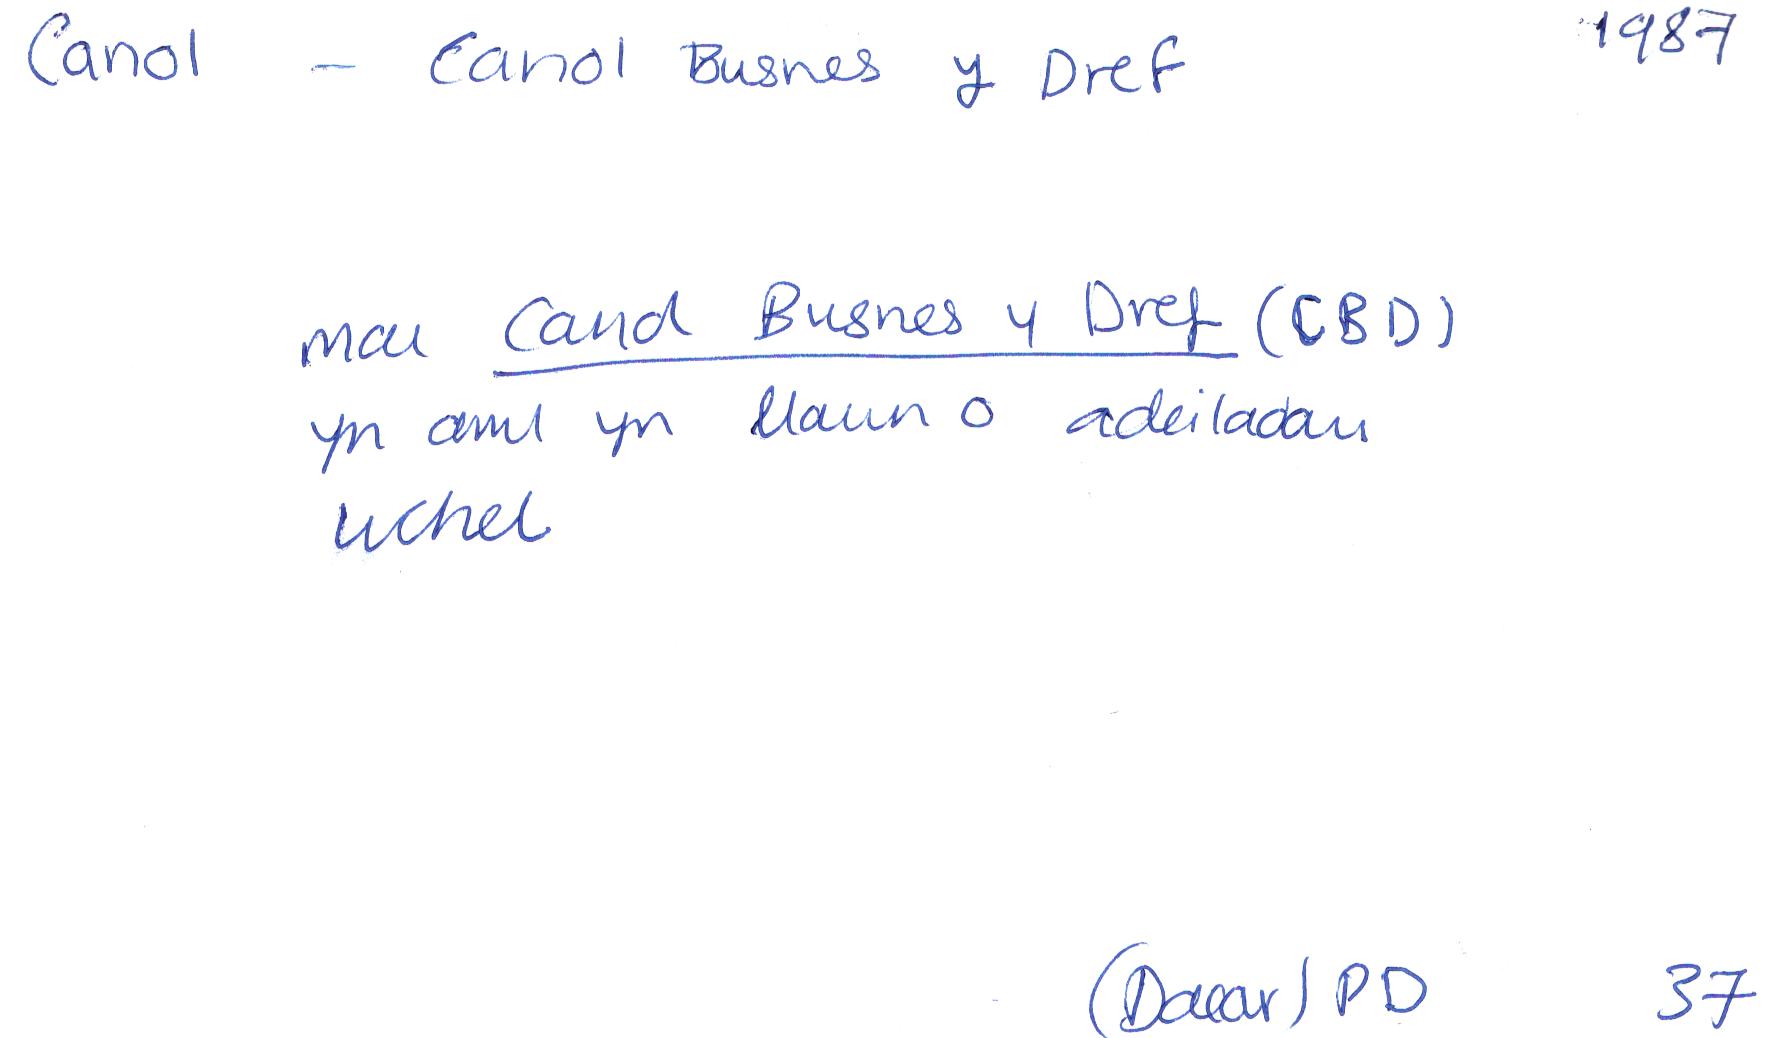 Canol - Canol Busnes y Dref 1987
mae Canol Busnes y Dref (CBD)
yn aml yn llawn o adeiladau
uchel
(Daear) PD 37